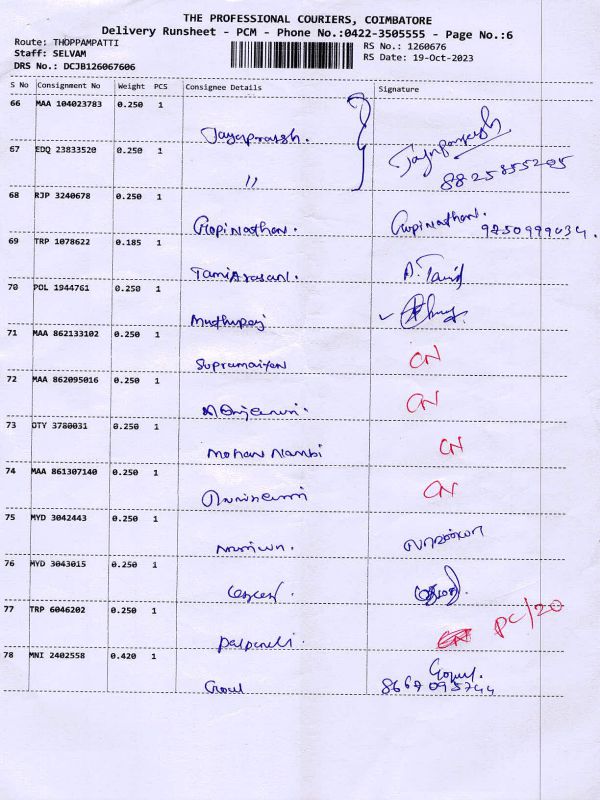 THE PROFESSIONAL COURIERS, COIMBATORE
Delivery Runsheet - PCM - Phone No.:0422-3505555 - Page No.:6
Route: THOPPAMPATTI RS No.: 1260676
Staff: SELVAM RS Date: 19-Oct-2023
DRS No.: DCJB126067606
S No Consignment No Weight PCS Consignee Details Signature
66 MAA 104023783 0.250 1
Jayaprakash.
67 EDQ 23833520 0.250 1
" 8825855205
68 RJP 3240678 0.250 1
Gopinathan. Gopinathan. 9250999034.
69 TRP 1078622 0.185 1
Tamilarasan. A. Tamil
70 POL 1944761 0.250 1
Muthuraj
71 MAA 862133102 0.250 1
Supramaiyan CN
72 MAA 862095016 0.250 1
CN
73 OTY 3780031 0.250 1
Mohan Nambi CN
74 MAA 861307140 0.250 1
CN
75 MYD 3042443 0.250 1
76 MYD 3043015 0.250 1
77 TRP 6046202 0.250 1
PC/20
78 MNI 2402558 0.420 1
Gopul.
8667095744